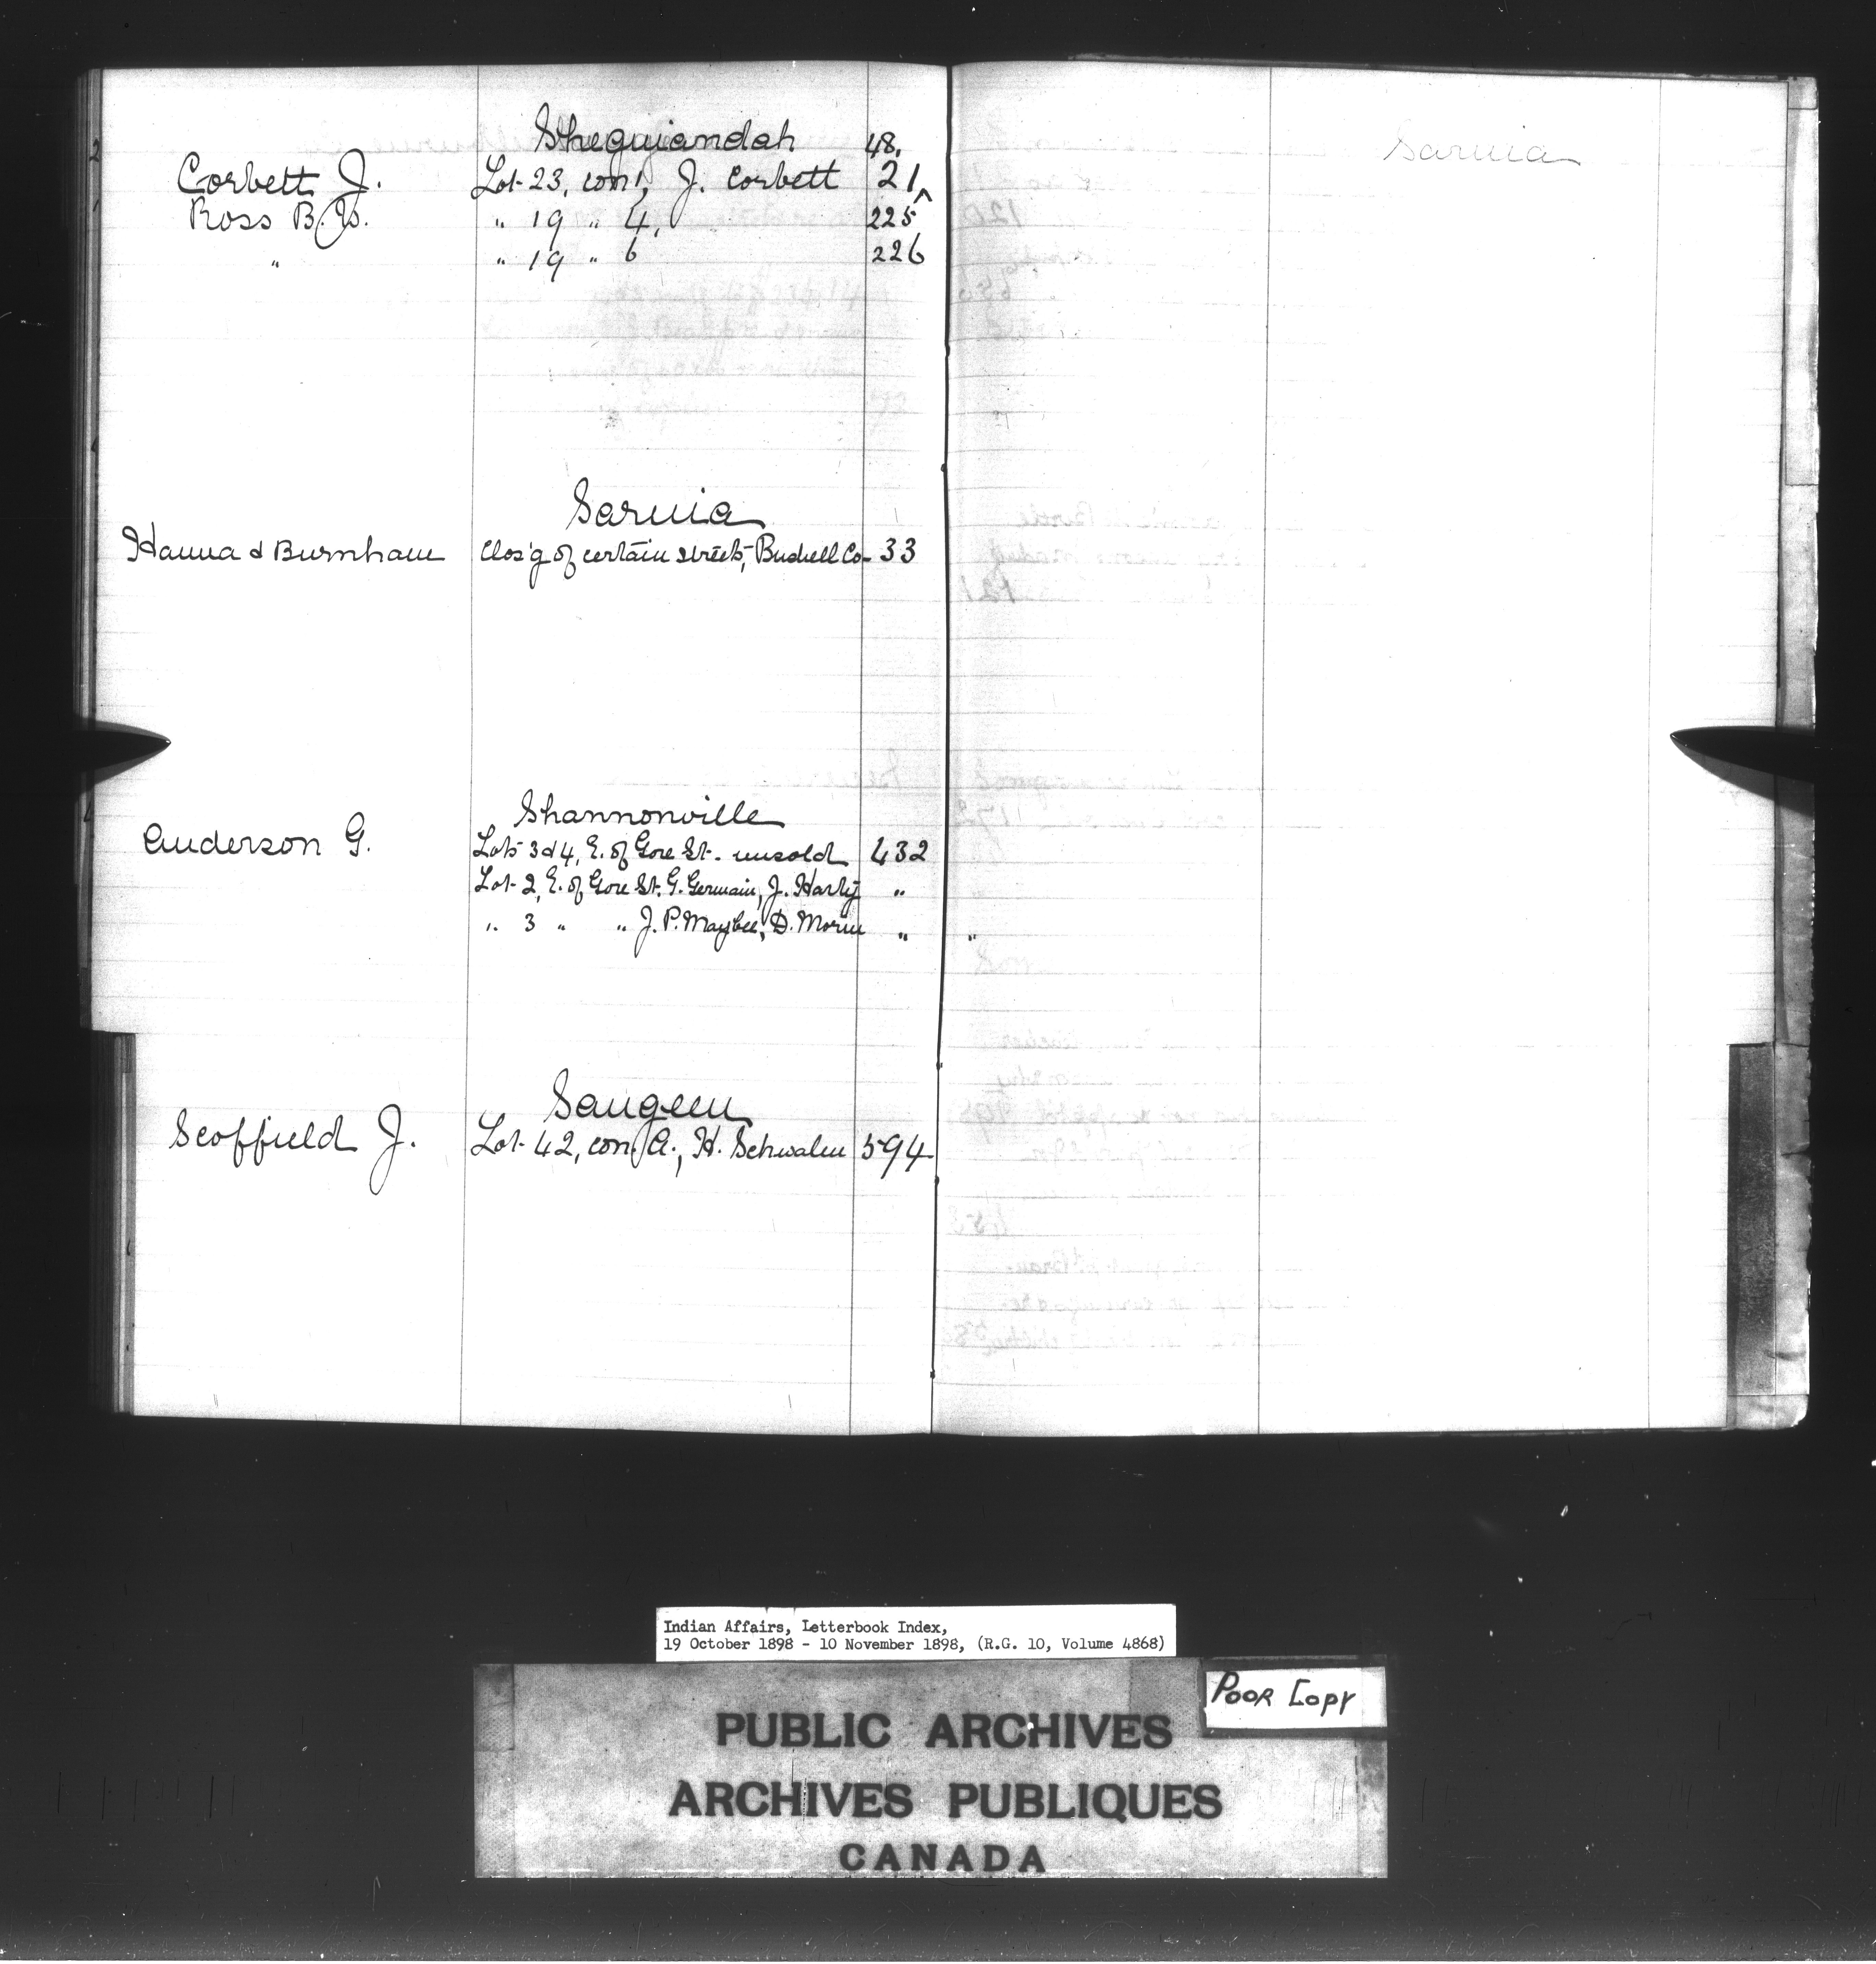 Sheguiandah 48.
Corbett J. Lot 23, con 1, J. Corbett 21 ^
Ross B. W. " 19 " 4, 225
" " 19 " 6 226
Sarnia
Hanna & Burnham Clos'g of certain streets, Bushell Co- 33
Shannonville
Anderson G. Lots 3 & 4, E. of Gore St. unsold 432
Lot 2, E. of Gore St. G. Germain, J. Harty "
" 3 " " J. P. Maybee, D. Morin " "
Saugeen
Scoffield J. Lot 42, con. A., H. Schwalm 594
Sarnia
Indian Affairs, Letterbook Index,
19 October 1898 - 10 November 1898, (R.G. 10, Volume 4868)
Poor Copy
PUBLIC ARCHIVES
ARCHIVES PUBLIQUES
CANADA